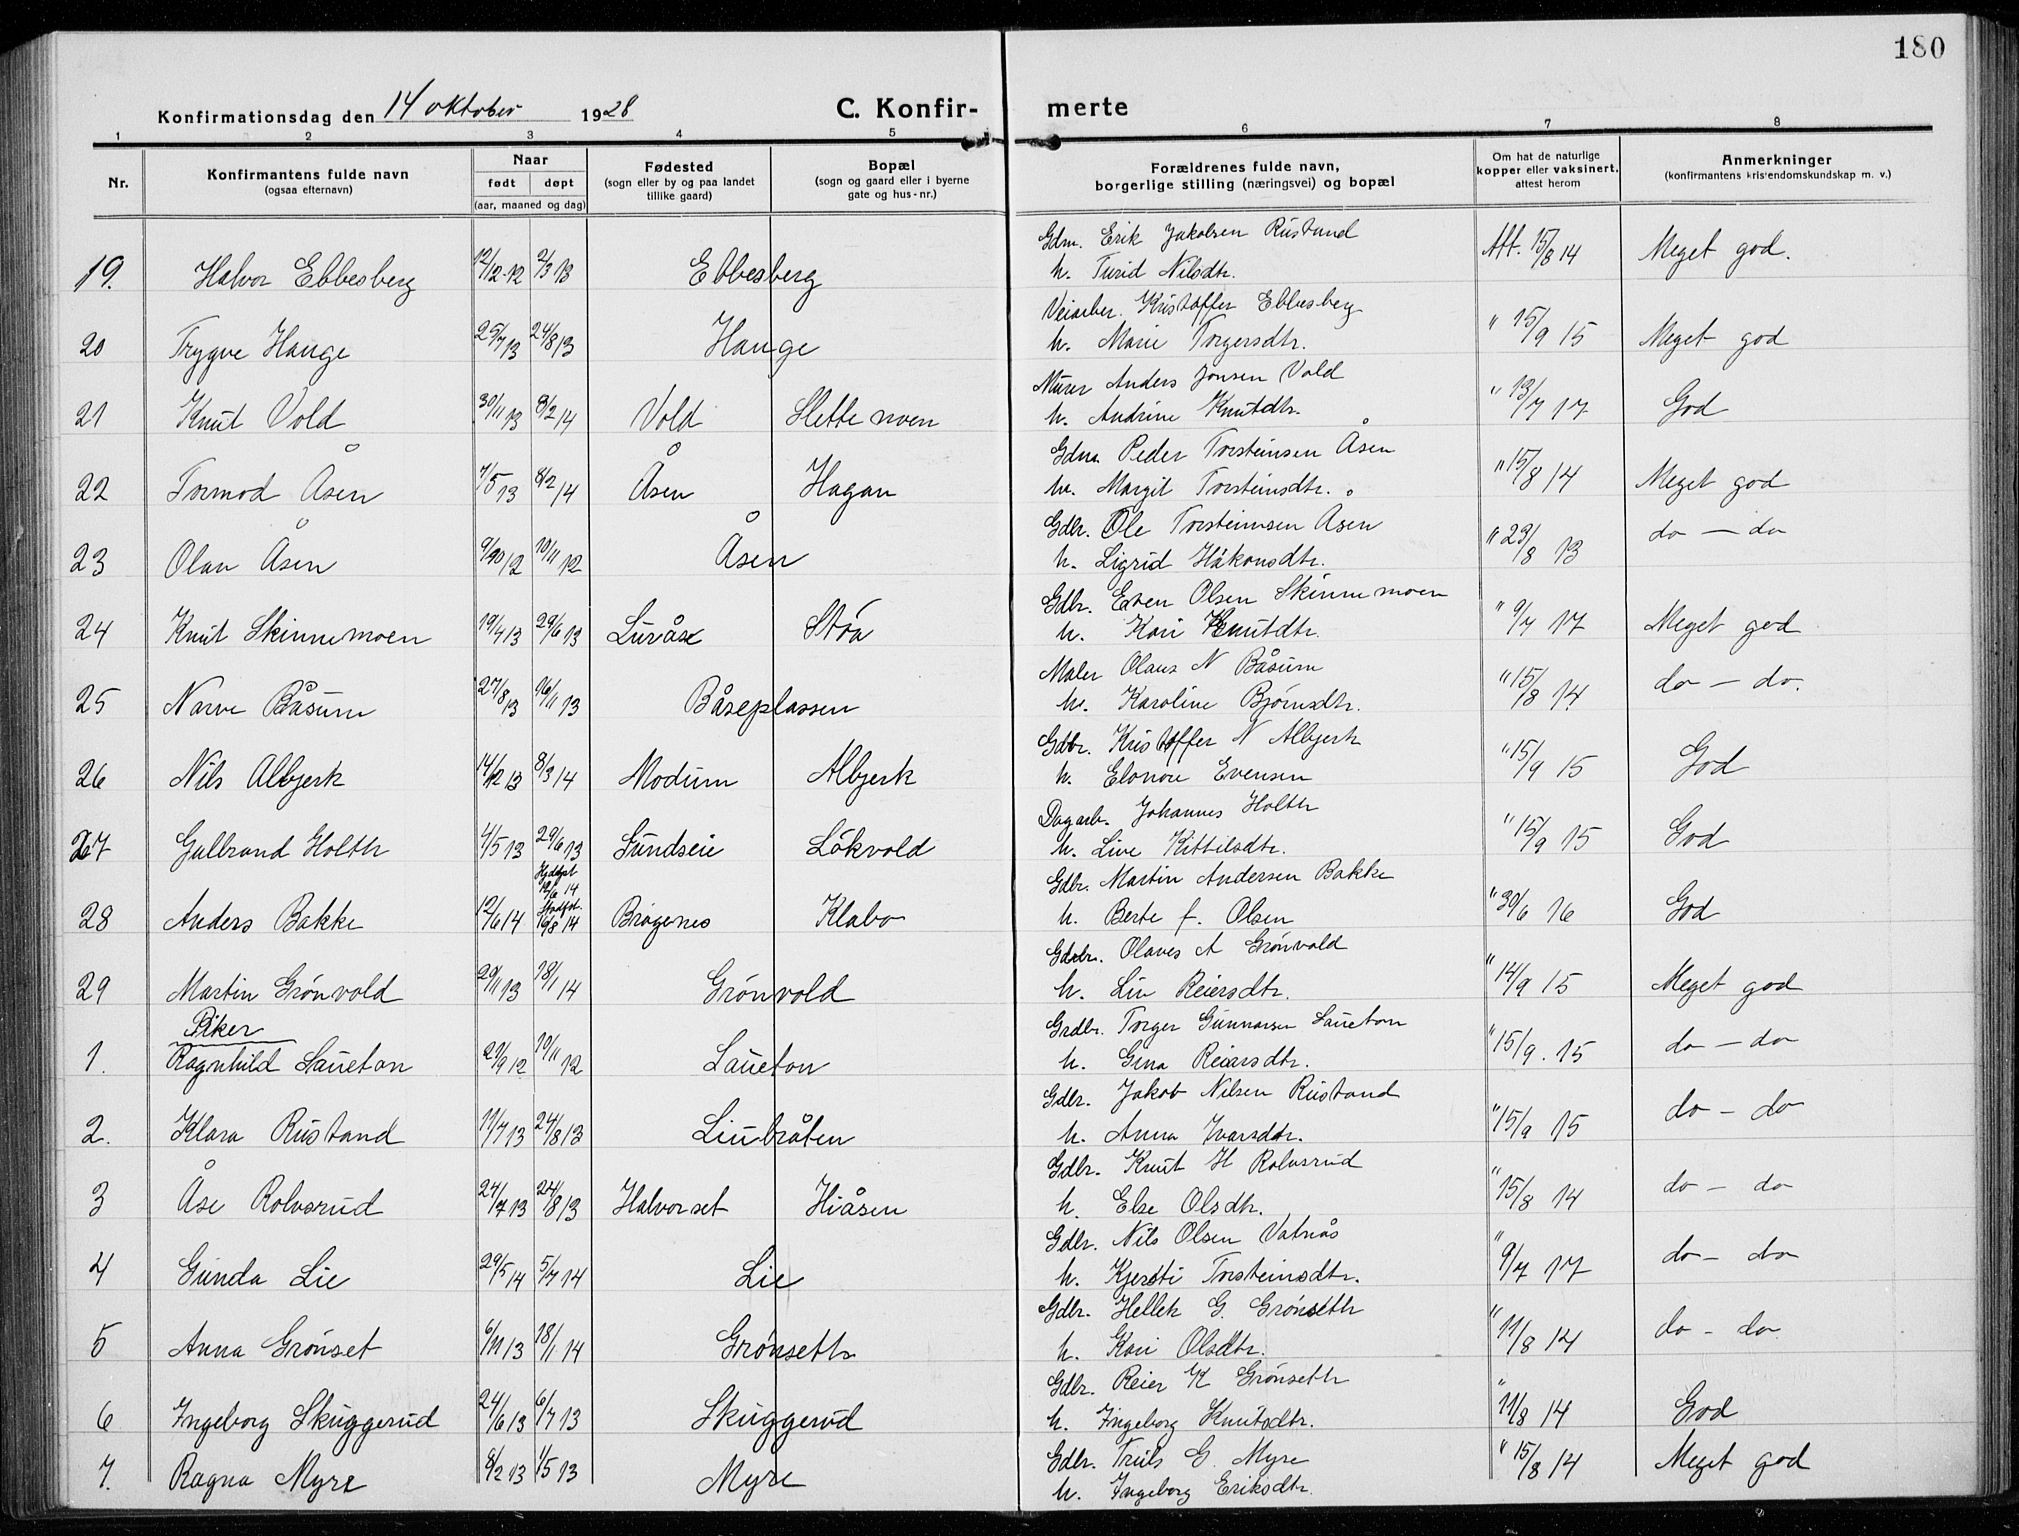 180
Konfirmationsdag den 14 oktober 1928 C. Konfirmerte
1 2 3 4 5 6 7 8
Nr. Konfirmantens fulde navn (ogsaa efternavn) Naar født døpt (aar, maaned og dag) Fødested (sogn eller by og paa landet tillike gaard) Bopæl (sogn og gaard eller i byerne gate og hus-nr.) Forældrenes fulde navn, borgerlige stilling (næringsvei) og bopæl Om hat de naturlige kopper eller vaksinert, attest herom Anmerkninger (konfirmantens kristendomskundskap m. v.)
Gdm. Erik Jakobsen Rustand
19. Halvor Ebbesberg 12/12-12 2/3 13 Ebbesberg h. Turid Nilsdtr. Att. 15/8 14 Meget god.
Veiarber. Kristoffer Ebbesberg
20 Trygve Hauge 25/7 13 24/8 13 Hauge h. Marie Torgersdtr. " 15/9 15 Meget god
Murer Anders Jonsen Vold
21 Knut Vold 30/11 13 8/2 14 Vold Slettemoen h. Andrine Knutdtr. " 13/7 17 God
Gdm. Peder Torsteinsen Åsen
22 Tormod Åsen 7/5 13 8/2 14 Åsen Hagan h. Margit Torsteinsdtr. " 15/8 14 Meget god
Gdbr. Ole Torsteinsen Åsen
23 Olav Åsen 9/10 12 10/11 12 Åsen h. Sigrid Håkonsdtr. " 23/8 13 do - do
Gdbr. Even Olsen Skinnemoen
24 Knut Skinnemoen 19/4 13 29/6 13 Luråse Støa h. Kari Knutdtr. " 9/7 17 Meget god
Maler Olaus N Båsum
25 Narve Båsum 27/8 13 16/11 13 Båseplassen h. Karoline Bjørnsdtr. " 15/8 14 do - do.
Gdbr. Kristoffer N Albjerk
26 Nils Albjerk 14/12 13 8/3 14 Modum Albjerk h. Elonore Evensen " 15/9 15 God
Dagarb. Johannes Holth
27 Gulbrand Holth 4/5 13 29/6 13 Sundseie Løkvold h. Live Kittilsdtr. " 15/9 15 God
Hjdøpt 12/6 14
Gdbr. Martin Andersen Bakke
28 Anders Bakke 12/6 14 Stadfst. 16/8 14 Bragenes Klabo h. Berte f. Olsen " 30/6 16 God
Gdbr. Olaves A Grønvold
29 Martin Grønvold 29/11 13 18/1 14 Grønvold h. Liv Reiersdtr. " 14/9 15 Meget god
Piker
Grdbr. Torger Gunnarsen Saueton
1. Ragnhild Saueton 29/9 12 10/11 12 Saueton h. Gina Reiarsdtr. " 15/9. 15 do - do
Gdbr. Jakob Nilsen Rustand
2. Klara Rustand 11/7 13 24/8 13 Liubråten h. Anna Ivarsdtr. " 15/9 15 do - do
Gdbr. Knut H Rolvsrud
3 Åse Rolvsrud 24/7 13 24/8 13 Halvorset Hiåsen h. Else Olsdtr. " 15/8 14 do - do
Gdbr. Nils Olsen Vatnås
4 Gunda Lie 29/5 14 5/7 14 Lie h. Kjersti Torsteinsdtr. " 9/7 17 do - do
Gdbr. Hellek G. Grønseth
5 Anna Grønset 6/11 13 18/1 14 Grønseth h. Kari Olsdtr. " 11/8 14 do - do
Gdbr. Reier K Grønseth
6 Ingeborg Skuggerud 24/6 13 6/7 13 Skuggerud h. Ingeborg Knutsdtr. " 11/8 14 God
Gdbr. Truls G. Myre
7. Ragna Myre 8/2 13 1/5 13 Myre h. Ingeborg Eriksdtr. " 15/8 14 Meget god